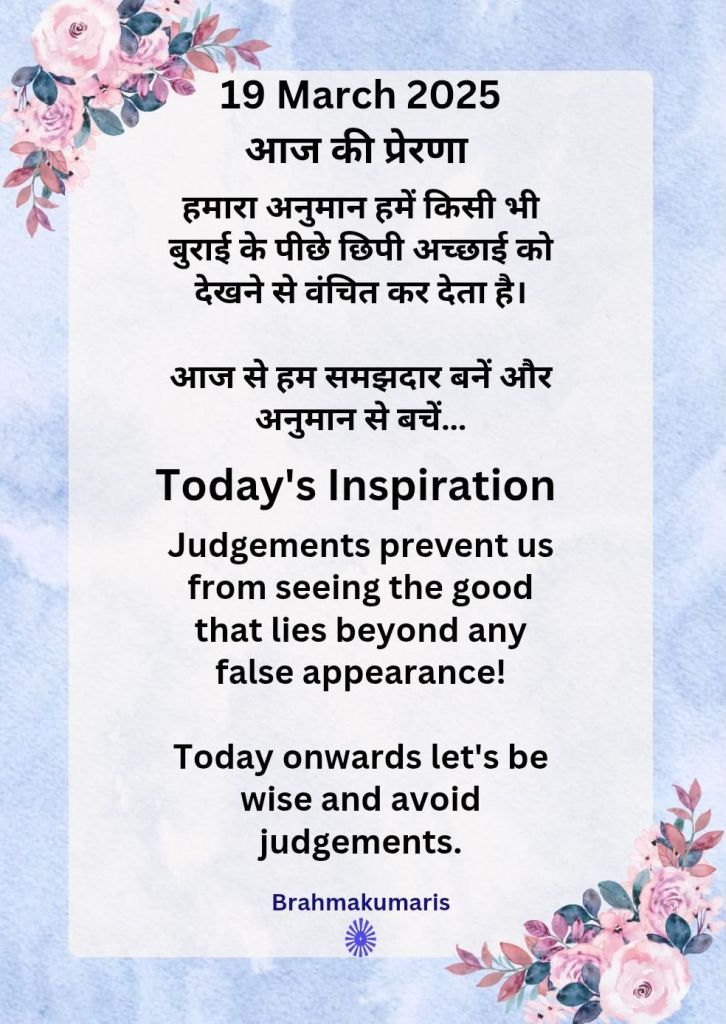 19 March 2025
आज की प्रेरणा
हमारा अनुमान हमें किसी भी
बुराई के पीछे छिपी अच्छाई को
देखने से वंचित कर देता है।
आज से हम समझदार बनें और
अनुमान से बचें...
Today's Inspiration
Judgements prevent us
from seeing the good
that lies beyond any
false appearance!
Today onwards let's be
wise and avoid
judgements.
Brahmakumaris